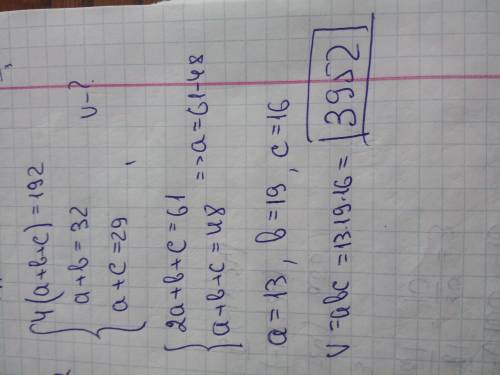 4(a+b+c)=192
a+b=32 v-?
a+c=29
2a+b+c=61
a+b+c=48 => a=61-48
a=13, b=19, c=16
v=abc=13·19·16=3952